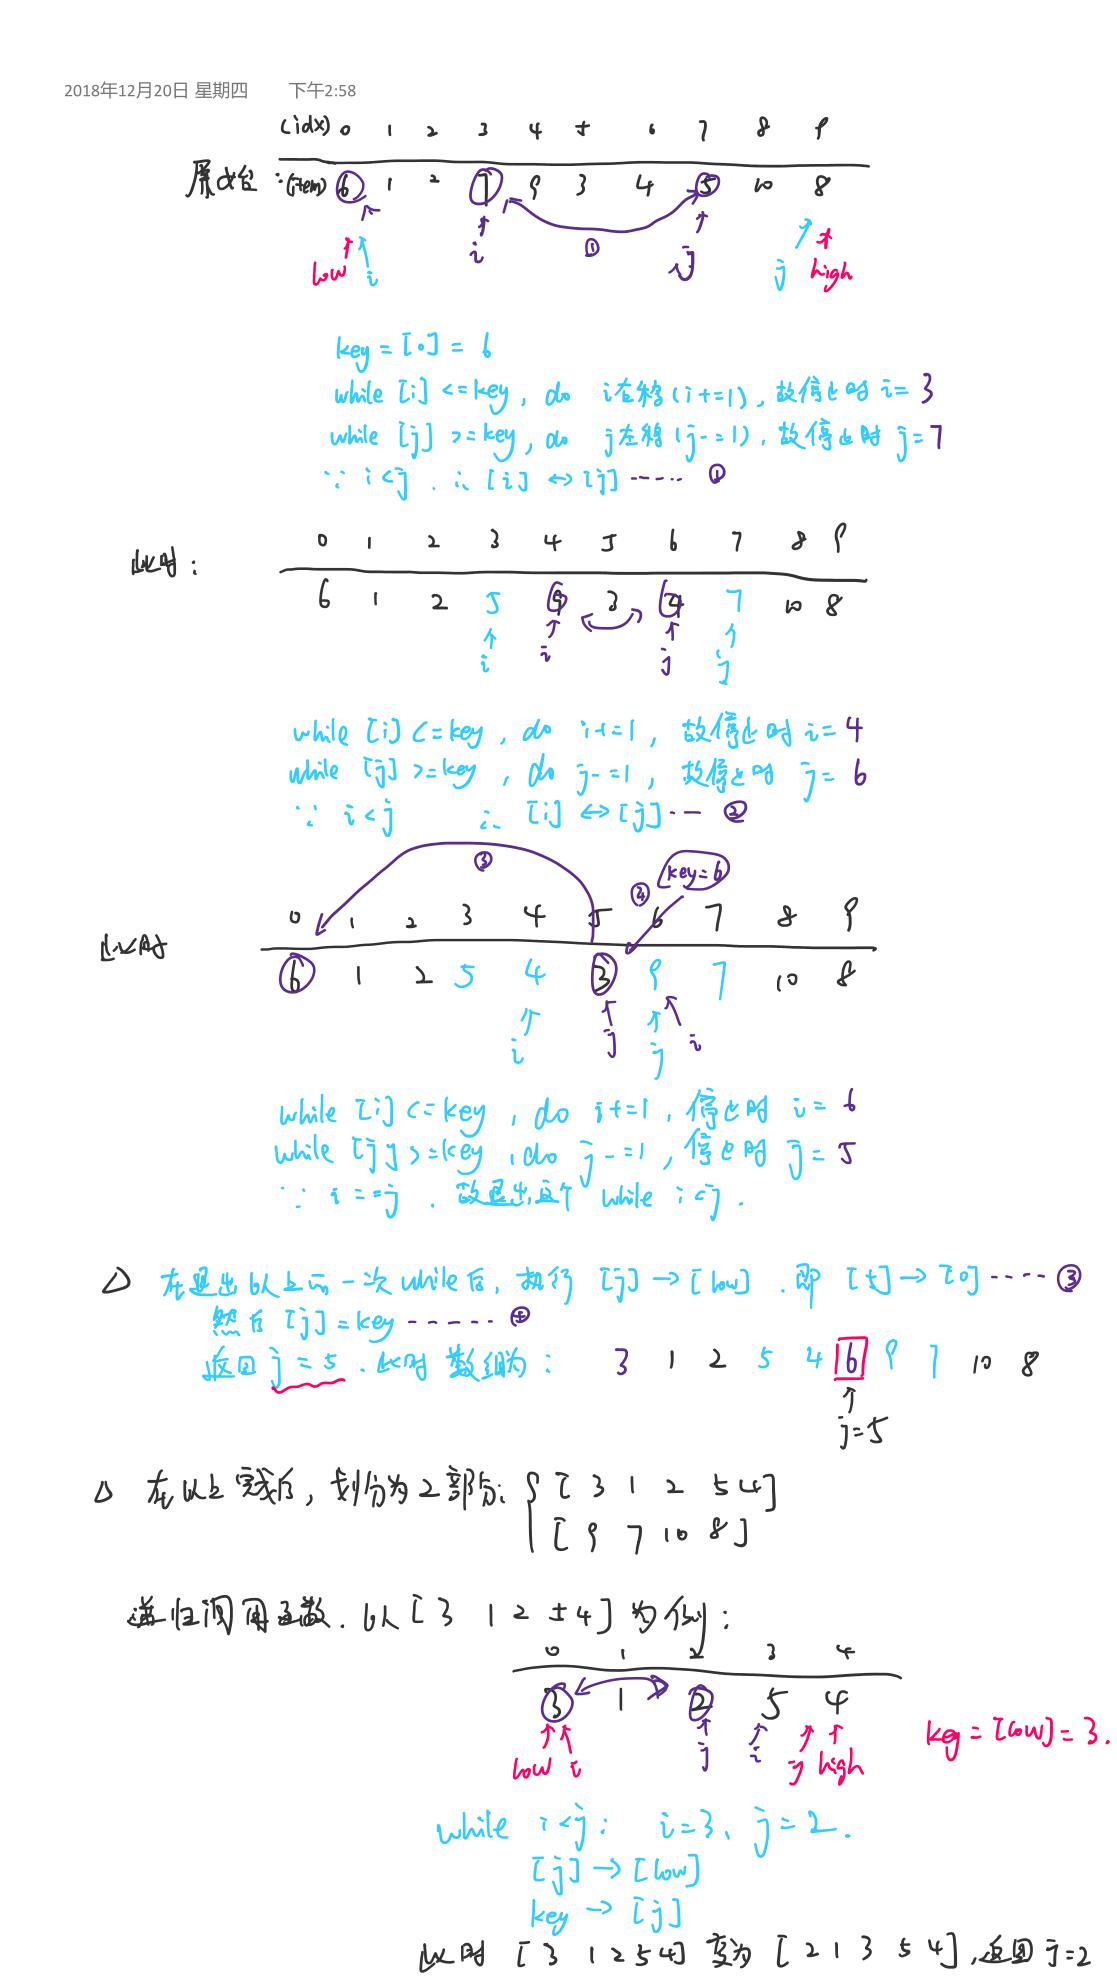 2018年12月20日 星期四 下午2:58
(idx) 0 1 2 3 4 5 6 7 8 9
原始 : (item) 6 1 2 7 9 3 4 5 10 8
①
low i i j j high
key = [0] = 6
while [i] <= key, do i右移(i+=1), 故停止时 i= 3
while [j] >= key, do j左移(j-=1), 故停止时 j= 7
∵ i<j . ∴ [i] ↔ [j] ------ ①
0 1 2 3 4 5 6 7 8 9
此时:
6 1 2 5 9 3 4 7 10 8
i i j j
while [i] <= key, do i+=1, 故停止时 i= 4
while [j] >= key, do j-=1, 故停止时 j= 6
∵ i<j ∴ [i] ↔ [j] --- ②
③ ④ key=6
0 1 2 3 4 5 6 7 8 9
此时
6 1 2 5 4 3 9 7 10 8
i j j i
while [i] <= key, do i+=1, 停止时 i= 6
while [j] >= key, do j-=1, 停止时 j= 5
∵ i==j . 故退出这个 while i<j.
△ 在退出以上的一次while后, 执行 [j] → [low] . 即 [5] → [0] ----- ③
然后 [j] = key ------ ④
返回 j = 5 . 此时 数组为: 3 1 2 5 4 6 9 7 10 8
j=5
△ 在以上完成后, 划分为2部分: { [ 3 1 2 5 4]
[ 9 7 10 8 ]
递归调用函数. 以 [ 3 1 2 5 4 ] 为例:
0 1 2 3 4
3 1 2 5 4
low i j i j high
key = [low] = 3.
while i<j: i=3, j=2.
[j] → [low]
key → [j]
此时 [ 3 1 2 5 4] 变为 [ 2 1 3 5 4], 返回 j=2